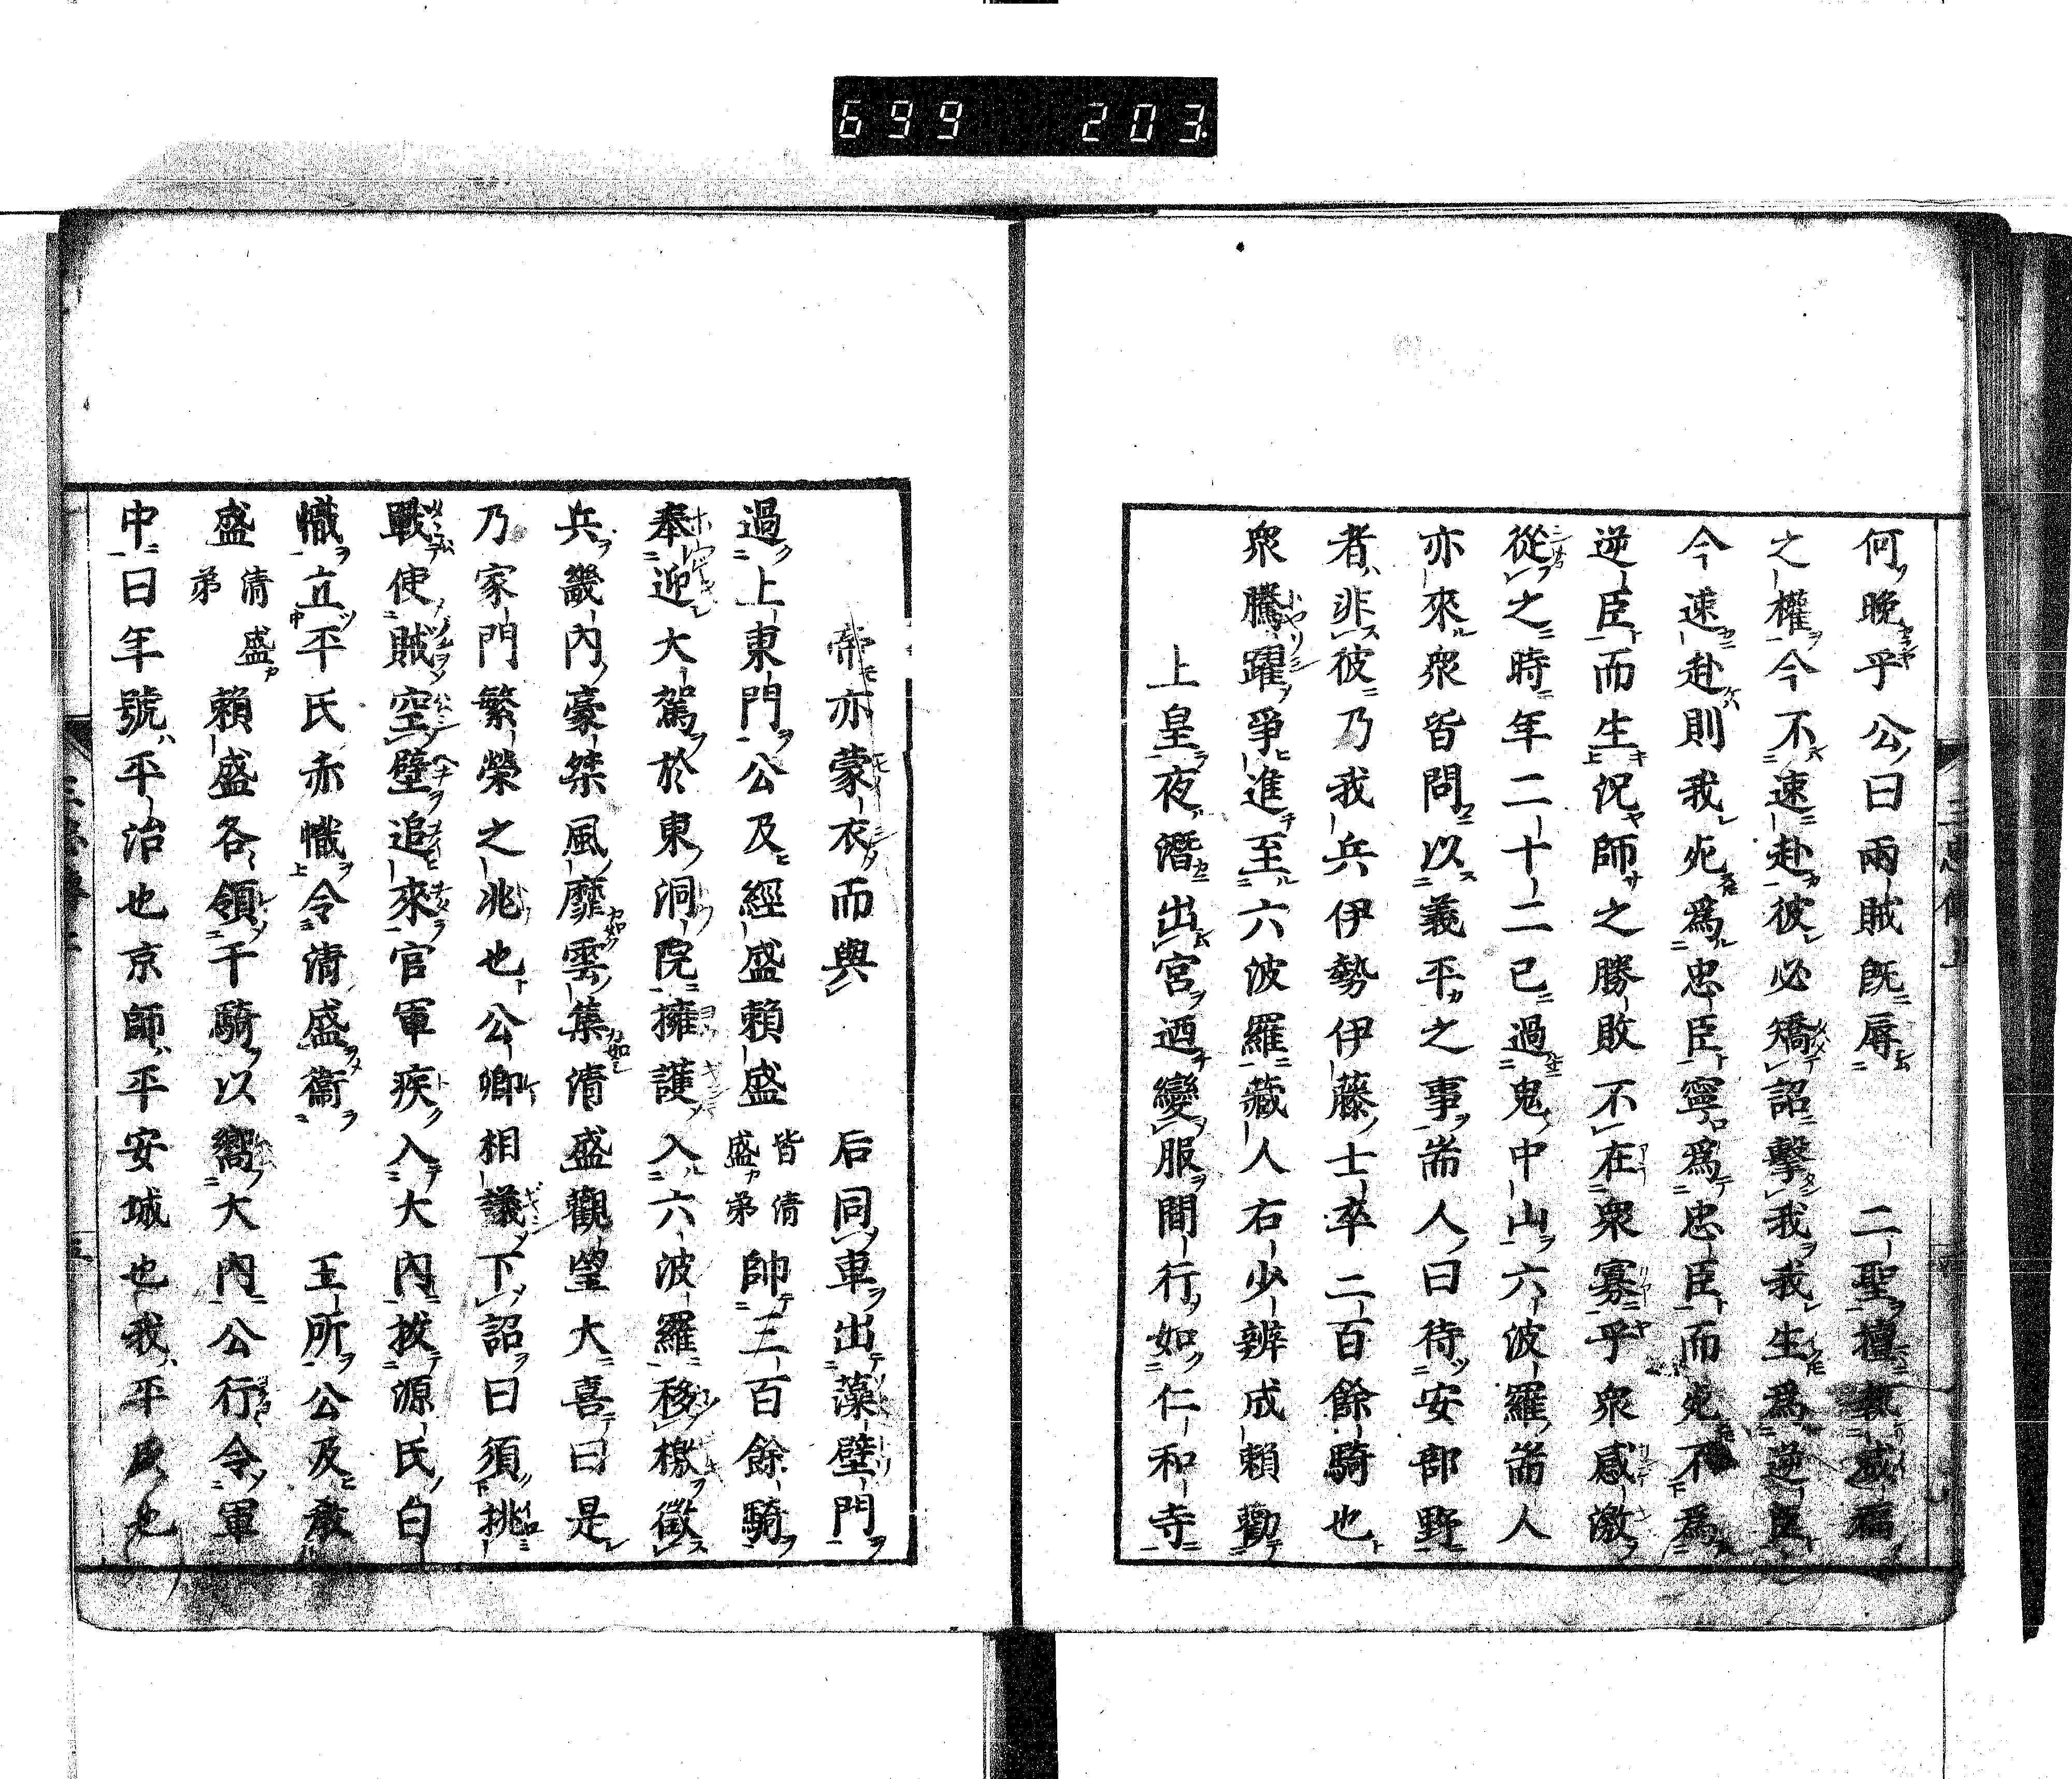 699 203
何晩乎公曰兩賊既辱二聖擅執威福
之權今不速赴彼必矯詔擊我我生爲逆臣
今速赴則我死爲忠臣寧爲忠臣而死不爲
逆臣而生況師之勝敗不在衆寡乎衆感激
從之時年二十二已過鬼中山六波羅耑人
亦來衆皆問以義平之事耑人曰待安部野
者非彼乃我兵伊勢伊藤士卒二百餘騎也
衆騰躍爭進至六波羅藏人右少辨成頼勸
上皇夜潛出宮迺變服間行如仁和寺
帝亦蒙衣而輿后同車出藻壁門
過上東門公及經盛頼盛皆清盛弟帥三百餘騎
奉迎大駕於東洞院擁護入六波羅移檄徴
兵畿内豪桀風靡雲集清盛觀望大喜曰是
乃家門繁榮之兆也公卿相議下詔曰須挑
戰使賊空壁追來官軍疾入大内拔源氏白
幟立平氏赤幟令清盛衞王所公及教
盛清盛弟頼盛各領千騎以嚮大内公行令軍
中曰年號平治也京師平安城也我平氏也